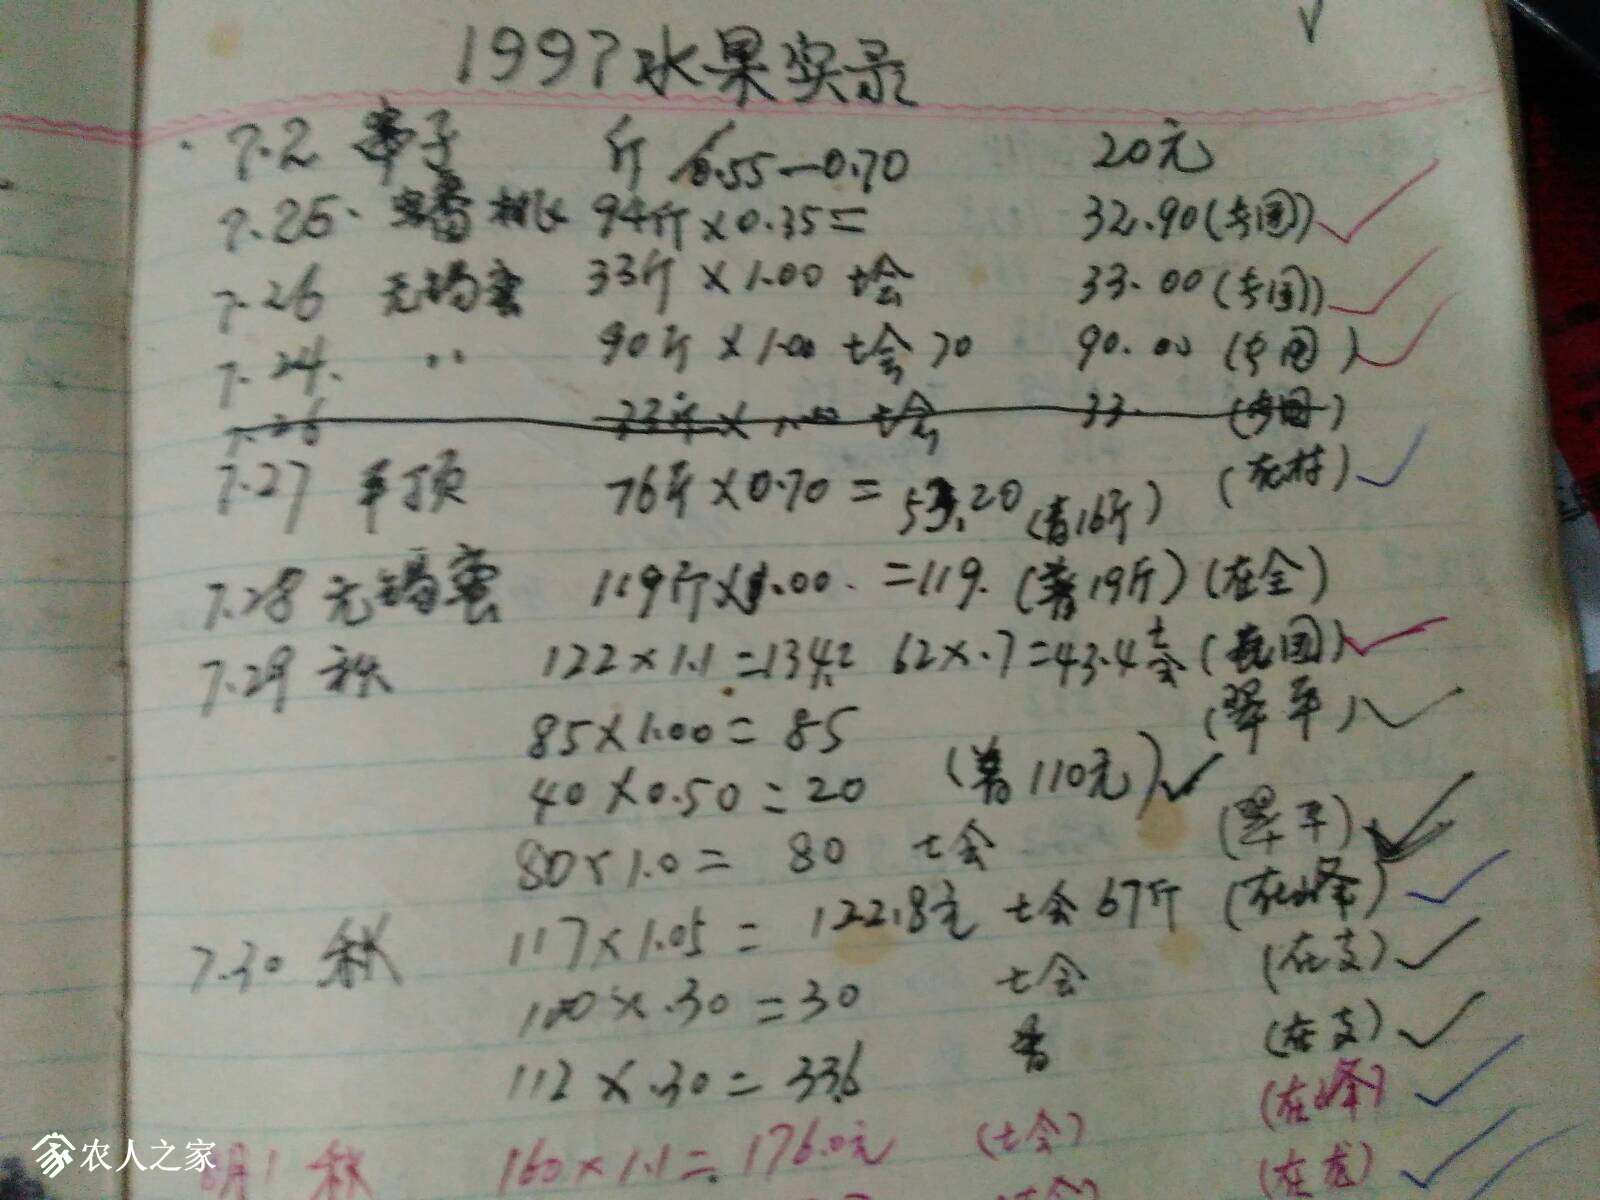 1997水果实录
7.2 李子 斤 0.55—0.70 20元
7.25. 蟠桃 94斤×0.35= 32.90(专团)
7.26 无锡蜜 33斤×1.00 七会 33.00(专团)
7.24. 〃 90斤×1.00 七会70 90.00(专团)
7.26 33斤×1.00 七会 33.
7.27 早顶 76斤×0.70=53.20(春16斤)
7.28 无锡蜜 119斤×1.00.=119.(春19斤)(在全)
7.29 秋 122×1.1=134.2 62×.7=43.4七会
85×1.00=85 (翠平)
40×0.50=20 (春110元)
80×1.0=80 七会 (翠平)
7.30 秋 117×1.05=122.8元 七会67斤(在峰)
100×.30=30 七会 (在支)
112×.30=33.6 春 (在支)
8月1 秋 160×1.1=176.0元 (七会) (在峰)
(在龙)
农人之家